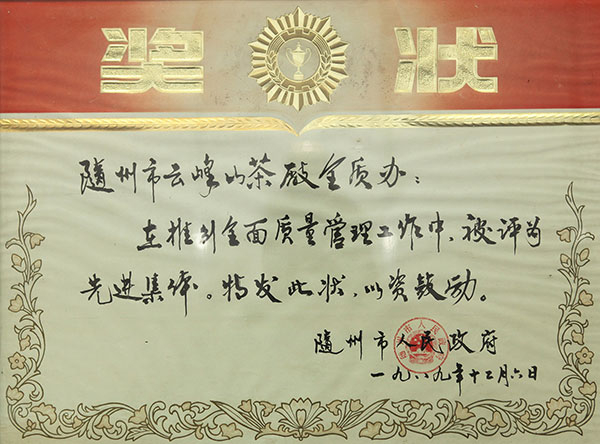 奖状
随州市云峰山茶厰全质办：
在推行全面质量管理工作中，被评为
先进集体。特发此状，以资鼓励。
随州市人民政府
一九八九年十二月六日